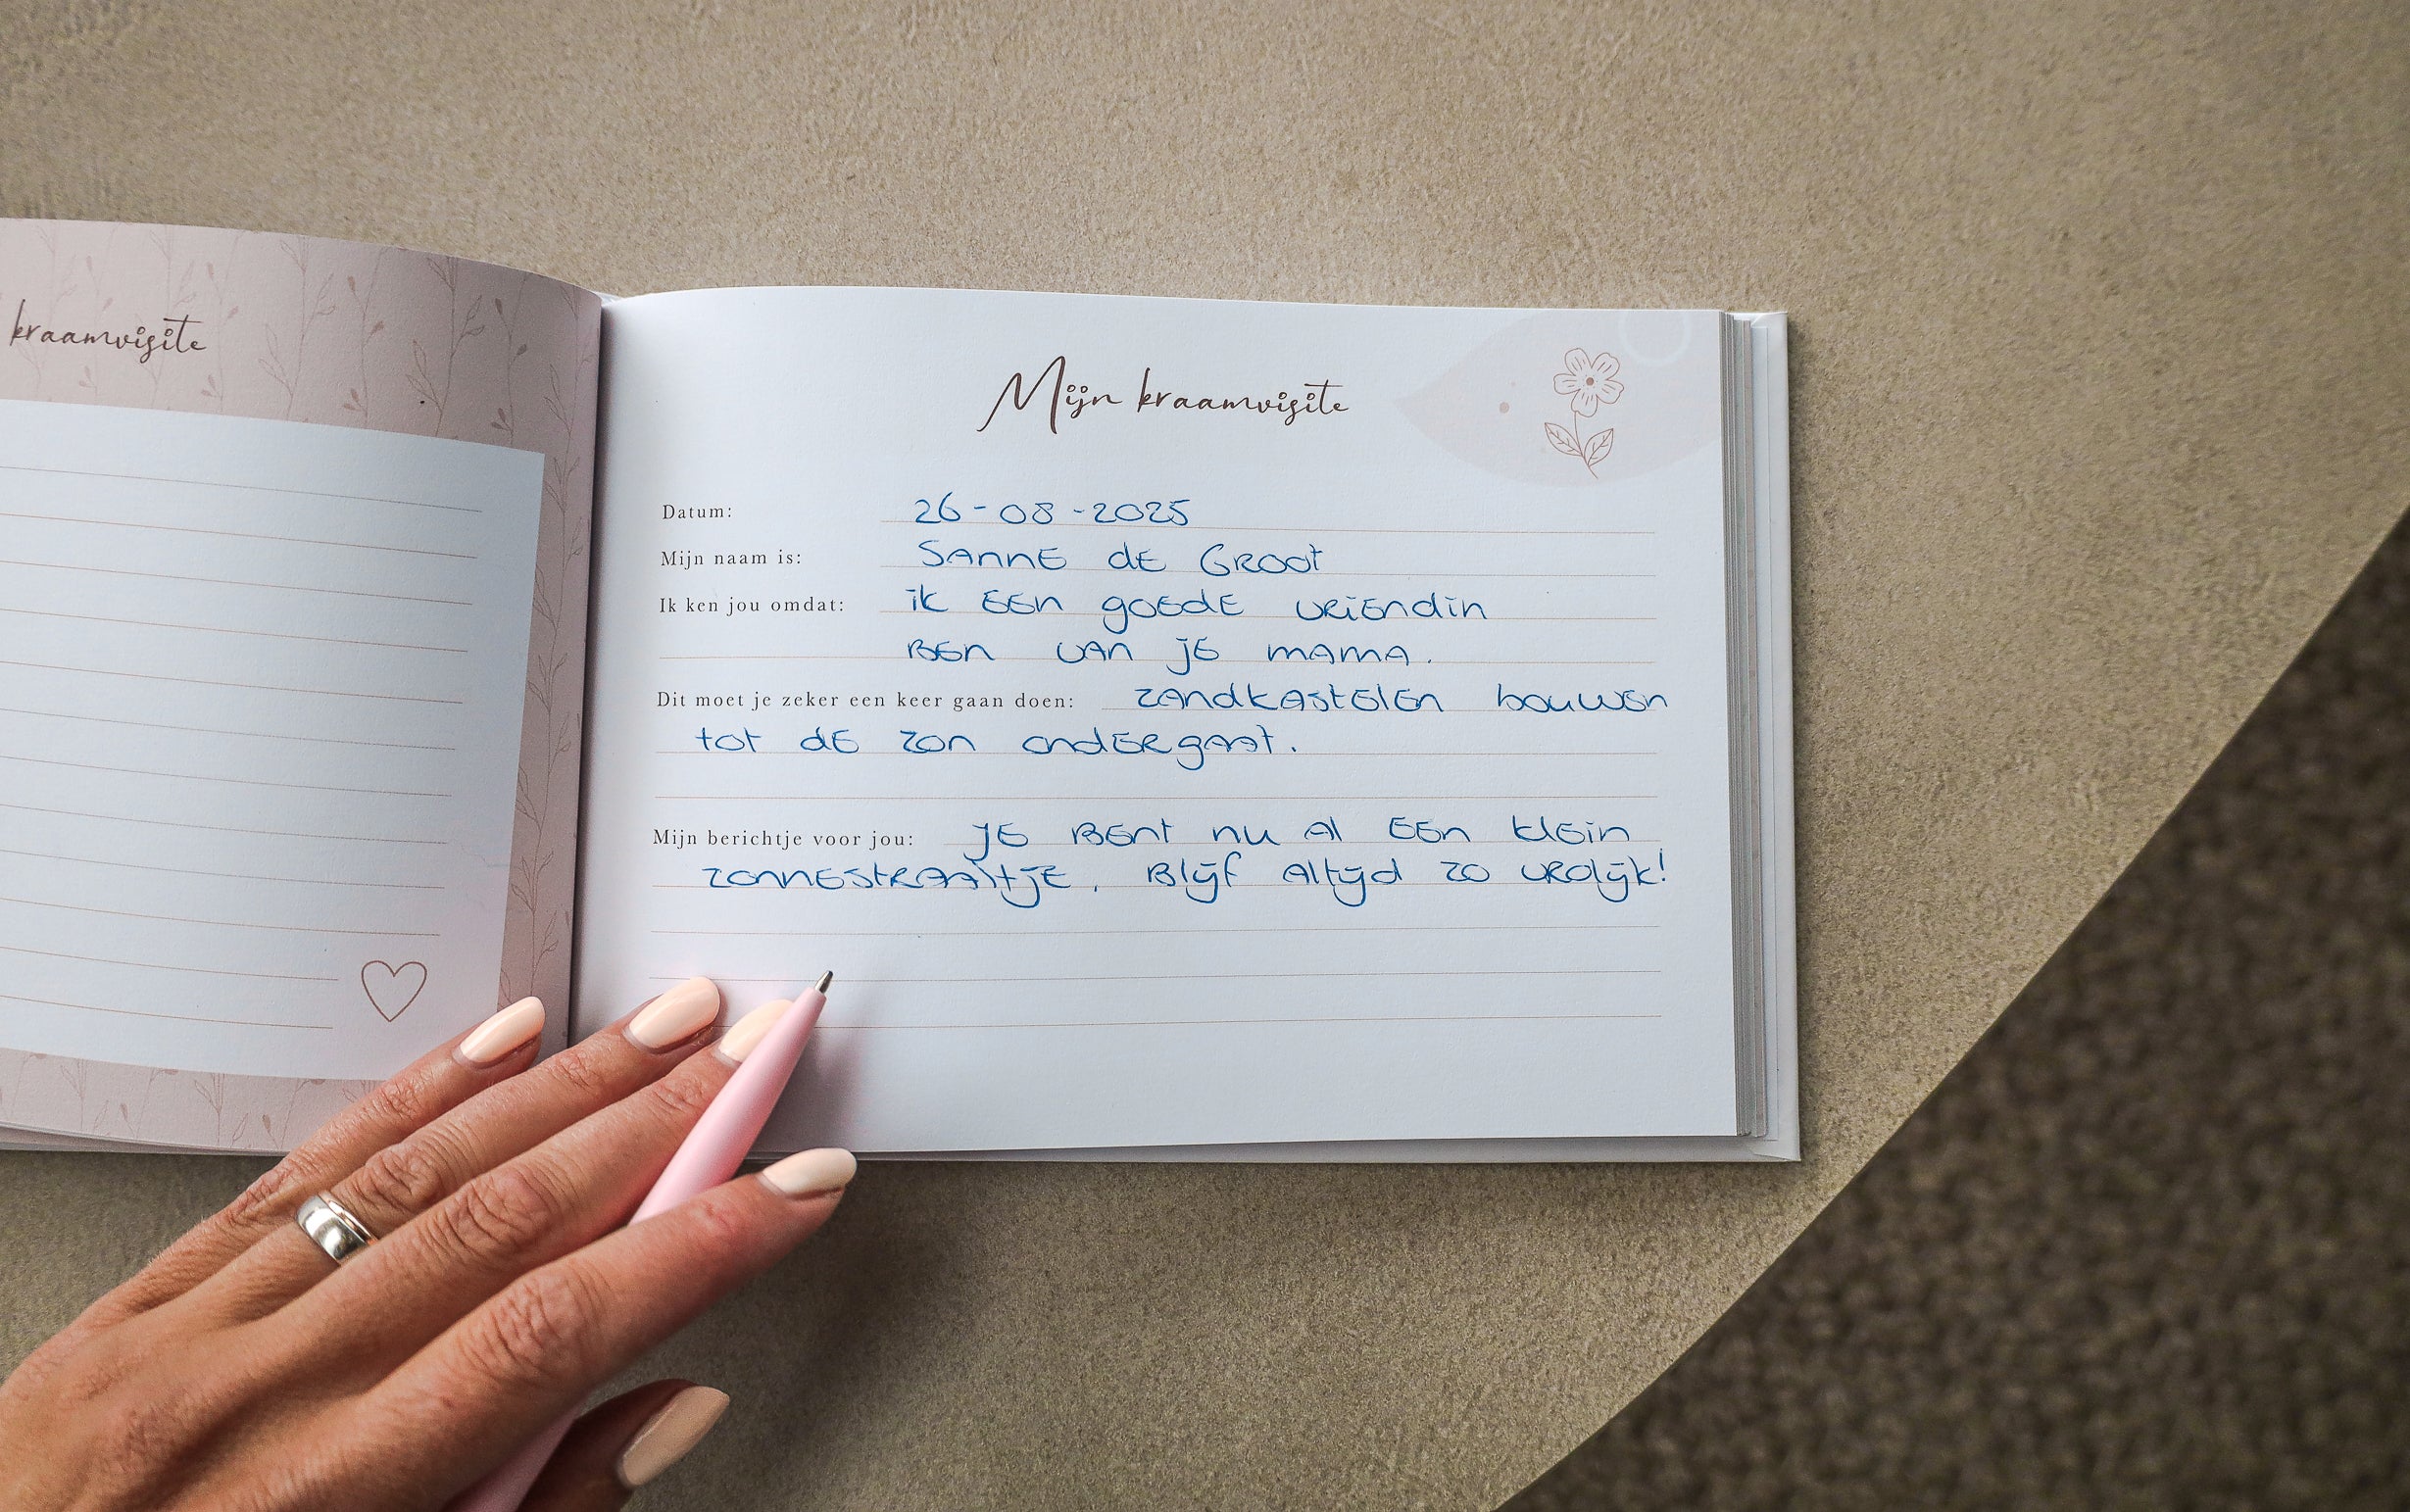 kraamvisite
Mijn kraamvisite
Datum: 26-08-2025
Mijn naam is: Sanne de Groot
Ik ken jou omdat: ik een goede vriendin
ben van je mama.
Dit moet je zeker een keer gaan doen: zandkastelen bouwen
tot de zon ondergaat.
Mijn berichtje voor jou: Je bent nu al een klein
zonnestraaltje. Blijf altijd zo vrolijk!